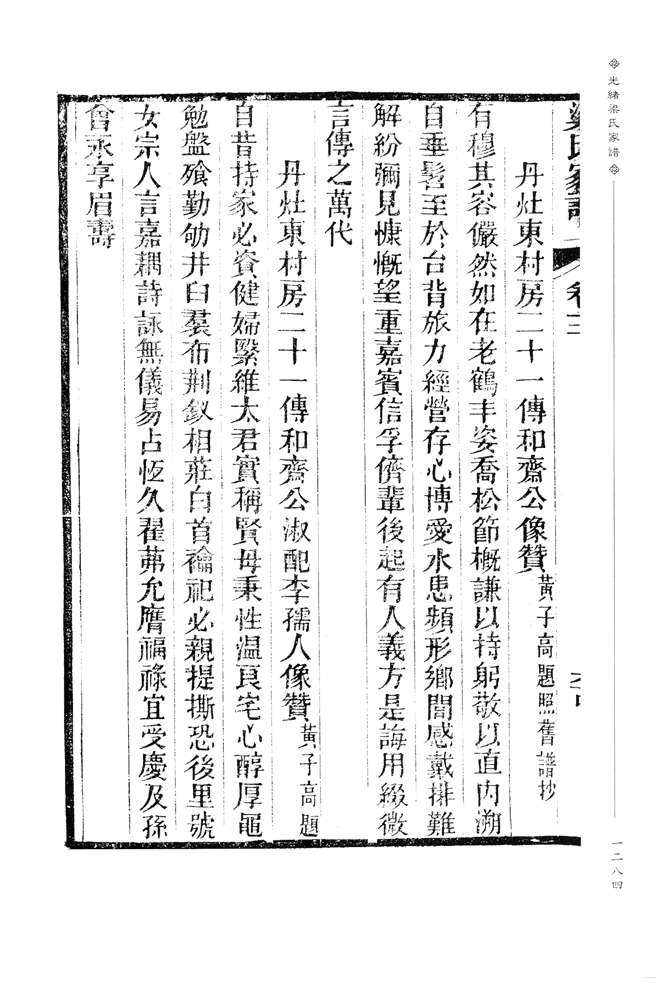 光緒梁氏家譜
一二八四
梁氏家譜 卷十二
丹灶東村房二十一傳和齋公像贊 黃子高題照舊譜抄
有穆其容儼然如在老鶴丰姿喬松節概謙以持躬敬以直內溯
自垂髫至於台背旅力經營存心博愛水患頻形鄉閭感戴排難
解紛彌見慷慨望重嘉賓信孚儕輩後起有人義方是誨用綴微
言傳之萬代
丹灶東村房二十一傳和齋公淑配李孺人像贊 黃子高題
自昔持家必資健婦繄維太君實稱賢母秉性溫良宅心醇厚黽
勉盤飱勤劬井臼羣布荆釵相莊白首禴祀必親提撕恐後里號
女宗人言嘉耦詩詠無儀易占恆久翟茀允膺福祿宜受慶及孫
曾永享眉壽